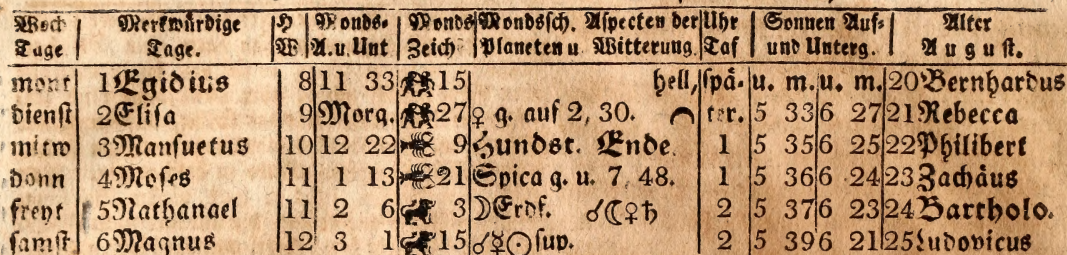 Woch Merkwürdige H Monds- Monds Mondssch. Aspecten der Uhr Sonnen Auf- Alter
Tage Tage. W A. u. Unt Zeich Planeten u Witterung. Taf und Unterg. August.
mont 1 Egidius 8 11 33 15 hell, spä- u. m. u. m. 20 Bernhardus
dienst 2 Elisa 9 Morg. 27 ♀ g. auf 2, 30. ter. 5 33 6 27 21 Rebecca
mitw 3 Mansuetus 10 12 22 9 Hundst. Ende. 1 5 35 6 25 22 Philibert
donn 4 Moses 11 1 13 21 Spica g. u. 7, 48. 1 5 36 6 24 23 Zachäus
freyt 5 Nathanael 11 2 6 3 ☽ Erdf. ☌☾♀♄ 2 5 37 6 23 24 Bartholo.
samst 6 Magnus 12 3 1 15 ☌☿☉ sup. 2 5 39 6 21 25 Ludovicus